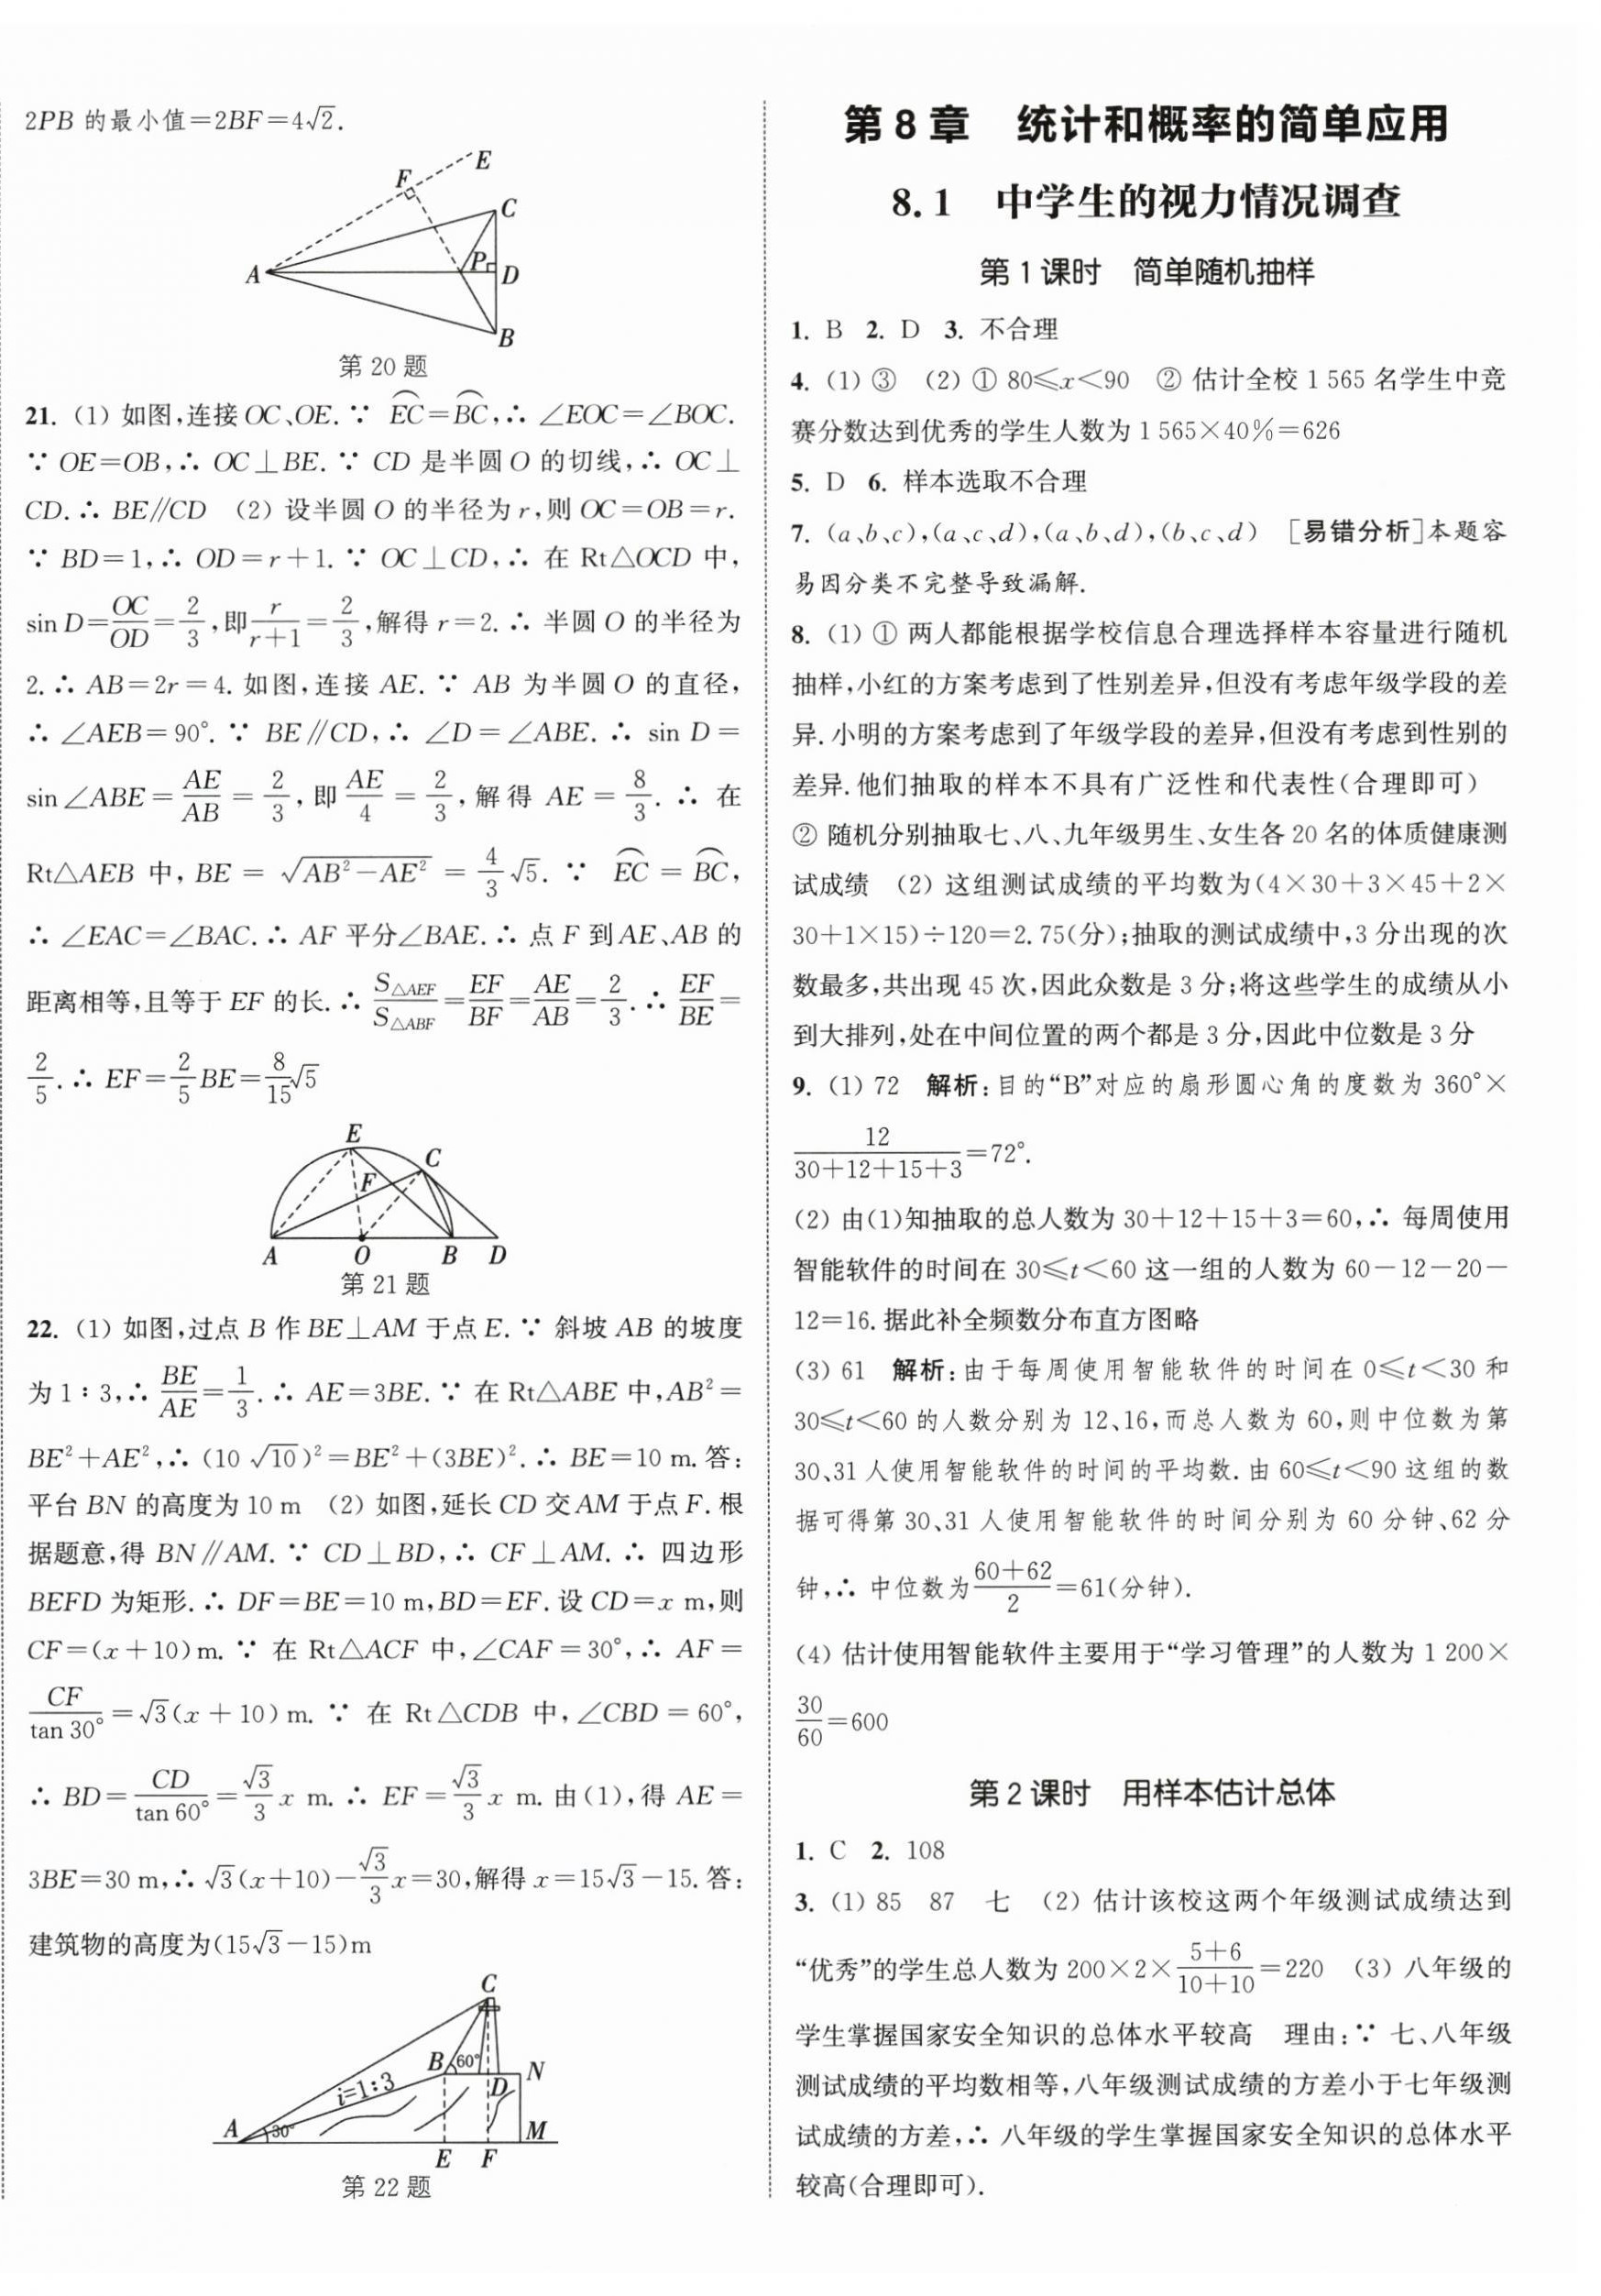 2PB 的最小值=2BF=4√2.
E
F
C
A
P
D
B
第 20 题
21. (1) 如图,连接 OC、OE. ∵ ⌒EC=⌒BC,∴ ∠EOC=∠BOC.
∵ OE=OB,∴ OC⊥BE. ∵ CD 是半圆 O 的切线,∴ OC⊥
CD. ∴ BE∥CD (2) 设半圆 O 的半径为 r,则 OC=OB=r.
∵ BD=1,∴ OD=r+1. ∵ OC⊥CD,∴ 在 Rt△OCD 中,
sin D=OC/OD=2/3,即 r/(r+1)=2/3,解得 r=2. ∴ 半圆 O 的半径为
2. ∴ AB=2r=4. 如图,连接 AE. ∵ AB 为半圆 O 的直径,
∴ ∠AEB=90°. ∵ BE∥CD,∴ ∠D=∠ABE. ∴ sin D=
sin∠ABE=AE/AB=2/3,即 AE/4=2/3,解得 AE=8/3. ∴ 在
Rt△AEB 中,BE=√(AB²-AE²)=4/3√5. ∵ ⌒EC=⌒BC,
∴ ∠EAC=∠BAC. ∴ AF 平分∠BAE. ∴ 点 F 到 AE、AB 的
距离相等,且等于 EF 的长. ∴ S△AEF/S△ABF=EF/BF=AE/AB=2/3. ∴ EF/BE=
2/5. ∴ EF=2/5BE=8/15√5
E
C
F
A
O
B
D
第 21 题
22. (1) 如图,过点 B 作 BE⊥AM 于点 E. ∵ 斜坡 AB 的坡度
为 1∶3,∴ BE/AE=1/3. ∴ AE=3BE. ∵ 在 Rt△ABE 中,AB²=
BE²+AE²,∴ (10√10)²=BE²+(3BE)². ∴ BE=10 m. 答:
平台 BN 的高度为 10 m (2) 如图,延长 CD 交 AM 于点 F. 根
据题意,得 BN∥AM. ∵ CD⊥BD,∴ CF⊥AM. ∴ 四边形
BEFD 为矩形. ∴ DF=BE=10 m,BD=EF. 设 CD=x m,则
CF=(x+10)m. ∵ 在 Rt△ACF 中,∠CAF=30°,∴ AF=
CF/tan 30°=√3(x+10)m. ∵ 在 Rt△CDB 中,∠CBD=60°,
∴ BD=CD/tan 60°=√3/3 x m. ∴ EF=√3/3 x m. 由(1),得 AE=
3BE=30 m,∴ √3(x+10)-√3/3 x=30,解得 x=15√3-15. 答:
建筑物的高度为(15√3-15)m
C
B
60°
N
D
i=1:3
A
30°
M
E
F
第 22 题
第 8 章 统计和概率的简单应用
8.1 中学生的视力情况调查
第 1 课时 简单随机抽样
1. B 2. D 3. 不合理
4. (1) ③ (2) ① 80≤x<90 ② 估计全校 1 565 名学生中竞
赛分数达到优秀的学生人数为 1 565×40%=626
5. D 6. 样本选取不合理
7. (a、b、c),(a、c、d),(a、b、d),(b、c、d) [易错分析]本题容
易因分类不完整导致漏解.
8. (1) ① 两人都能根据学校信息合理选择样本容量进行随机
抽样,小红的方案考虑到了性别差异,但没有考虑年级学段的差
异. 小明的方案考虑到了年级学段的差异,但没有考虑到性别的
差异. 他们抽取的样本不具有广泛性和代表性(合理即可)
② 随机分别抽取七、八、九年级男生、女生各 20 名的体质健康测
试成绩 (2) 这组测试成绩的平均数为(4×30+3×45+2×
30+1×15)÷120=2.75(分);抽取的测试成绩中,3 分出现的次
数最多,共出现 45 次,因此众数是 3 分;将这些学生的成绩从小
到大排列,处在中间位置的两个都是 3 分,因此中位数是 3 分
9. (1) 72 解析:目的“B”对应的扇形圆心角的度数为 360°×
12/(30+12+15+3)=72°.
(2) 由(1)知抽取的总人数为 30+12+15+3=60,∴ 每周使用
智能软件的时间在 30≤t<60 这一组的人数为 60-12-20-
12=16. 据此补全频数分布直方图略
(3) 61 解析:由于每周使用智能软件的时间在 0≤t<30 和
30≤t<60 的人数分别为 12、16,而总人数为 60,则中位数为第
30、31 人使用智能软件的时间的平均数. 由 60≤t<90 这组的数
据可得第 30、31 人使用智能软件的时间分别为 60 分钟、62 分
钟,∴ 中位数为(60+62)/2=61(分钟).
(4) 估计使用智能软件主要用于“学习管理”的人数为 1 200×
30/60=600
第 2 课时 用样本估计总体
1. C 2. 108
3. (1) 85 87 七 (2) 估计该校这两个年级测试成绩达到
“优秀”的学生总人数为 200×2×(5+6)/(10+10)=220 (3) 八年级的
学生掌握国家安全知识的总体水平较高 理由:∵ 七、八年级
测试成绩的平均数相等,八年级测试成绩的方差小于七年级测
试成绩的方差,∴ 八年级的学生掌握国家安全知识的总体水平
较高(合理即可).